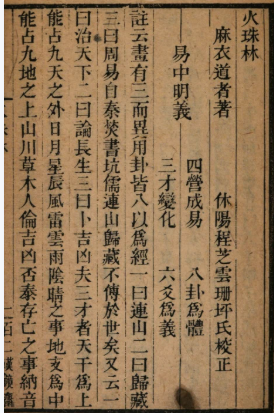 火珠林
麻衣道者著 休陽程芝雲珊坪氏校正
易中明義
四營成易 八卦為體
三才變化 六爻為義
註云畫有三而異用卦皆八以為經一曰連山二曰歸藏
三曰周易自秦焚書坑儒連山歸藏不傳於世矣又云一
曰治天下二曰論長生三曰卜吉凶夫三才者天干為上
能占九天之外日月星辰風雷雲雨陰晴之事地支為中
能占九地之上山川草木人倫吉凶否泰存亡之事納音